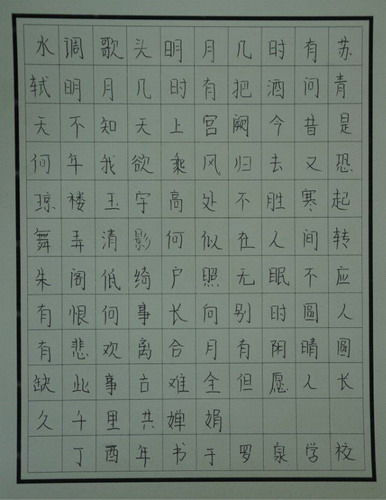 水调歌头明月几时有苏
轼明月几时有把酒问青
天不知天上宫阙今昔是
何年我欲乘风归去又恐
琼楼玉宇高处不胜寒起
舞弄清影何似在人间转
朱阁低绮户照无眠不应
有恨何事长向别时圆人
有悲欢离合月有阴晴圆
缺此事古难全但愿人长
久千里共婵娟
丁酉年书于罗泉学校